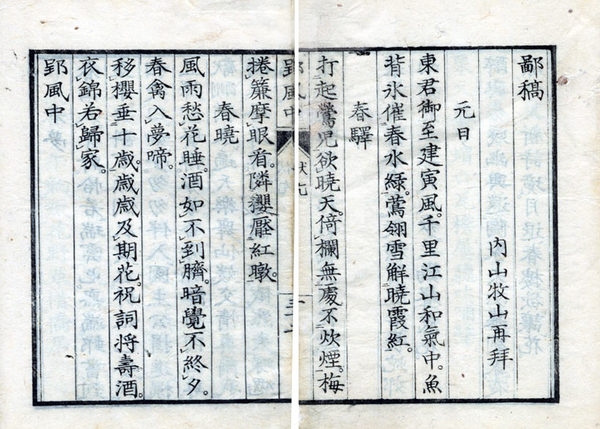 鄙稿
内山牧山再拜
元日
東君御至建寅風。千里江山和氣中。魚
背氷催春水綠。鶯翎雪解曉霞紅。
春驛
打起鶯児欲曉天。倚欄無處不炊煙。梅
郢風中
捲簾摩眼看。隣櫻壓紅墩。
春曉
風雨愁花睡。酒如不到臍。暗覺不終夕。
春禽入夢啼。
移櫻垂十歳。歳歳及期花。祝詞将壽酒。
衣錦若歸家。
郢風中